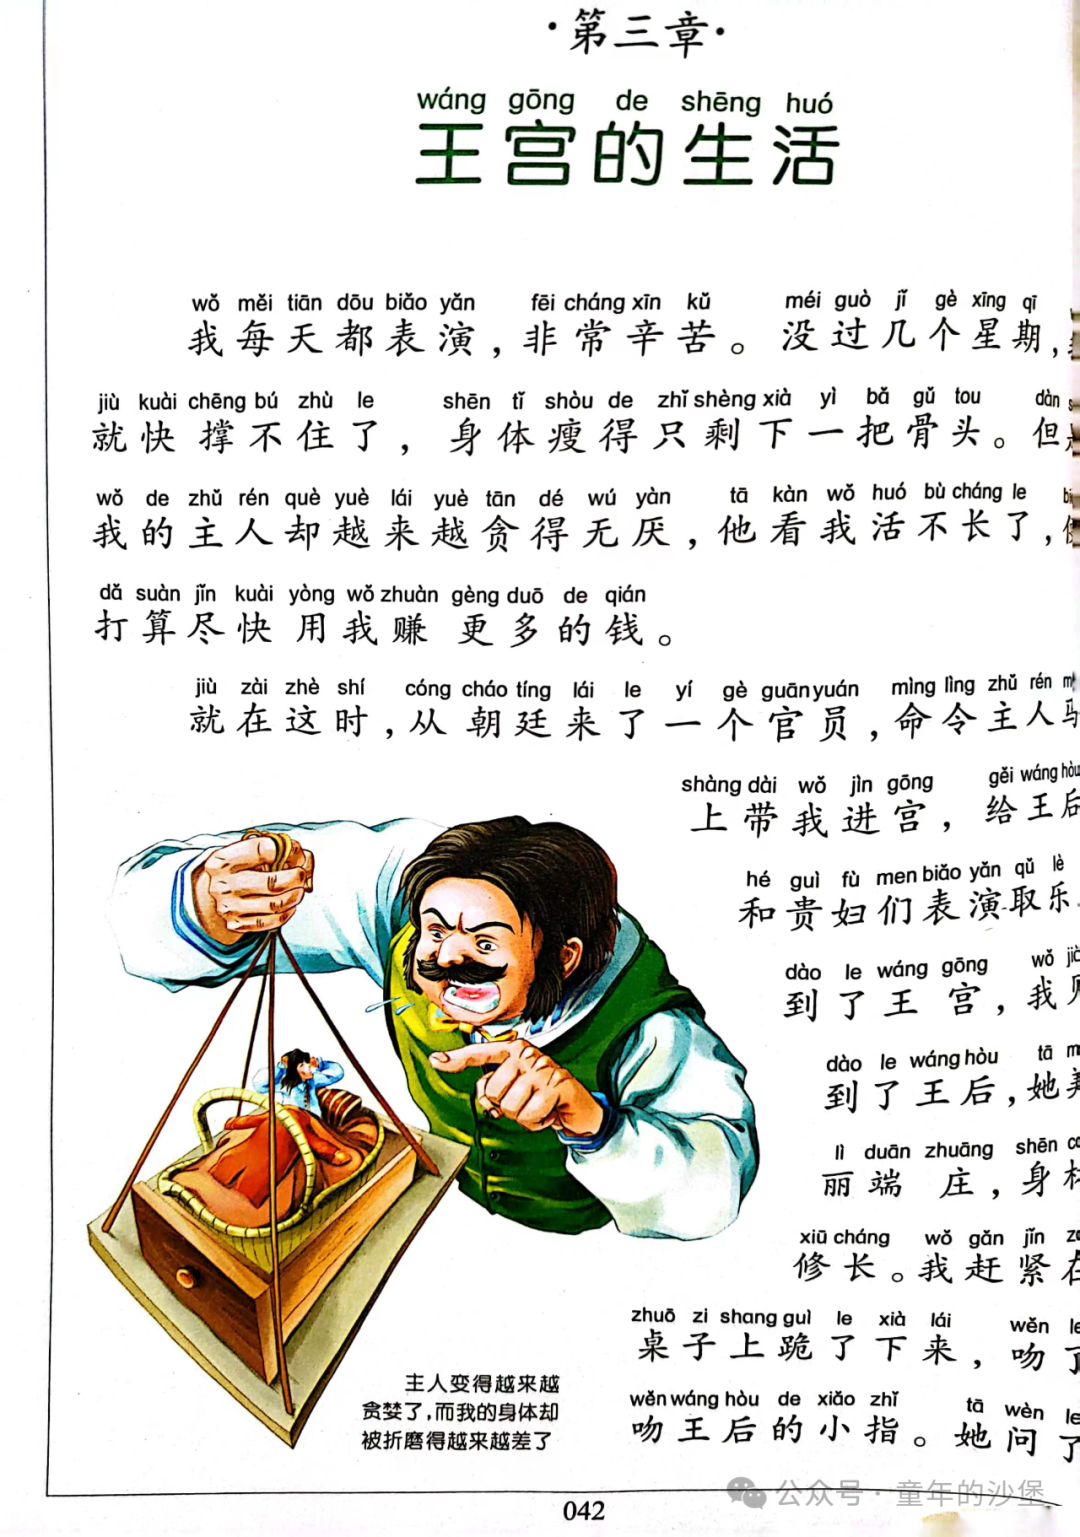 ·第三章·
wáng gōng de shēng huó
王宫的生活
wǒ měi tiān dōu biǎo yǎn fēi cháng xīn kǔ méi guò jǐ gè xīng qī
我每天都表演，非常辛苦。没过几个星期，
jiù kuài chēng bú zhù le shēn tǐ shòu de zhǐ shèng xià yì bǎ gǔ tou dàn
就快撑不住了，身体瘦得只剩下一把骨头。但
wǒ de zhǔ rén què yuè lái yuè tān dé wú yàn tā kàn wǒ huó bù cháng le
我的主人却越来越贪得无厌，他看我活不长了，
dǎ suàn jǐn kuài yòng wǒ zhuàn gèng duō de qián
打算尽快用我赚更多的钱。
jiù zài zhè shí cóng cháo tíng lái le yí gè guān yuán mìng lìng zhǔ rén
就在这时，从朝廷来了一个官员，命令主人
shàng dài wǒ jìn gōng gěi wáng hòu
上带我进宫，给王后
hé guì fù men biǎo yǎn qǔ lè
和贵妇们表演取乐
dào le wáng gōng wǒ
到了王宫，我
dào le wáng hòu tā
到了王后，她
lì duān zhuāng shēn
丽端庄，身
xiū cháng wǒ gǎn jǐn
修长。我赶紧
zhuō zi shang guì le xià lái wěn
桌子上跪了下来，吻
wěn wáng hòu de xiǎo zhǐ tā wèn
吻王后的小指。她问
主人变得越来越
贪婪了，而我的身体却
被折磨得越来越差了
公众号·童年的沙堡
042